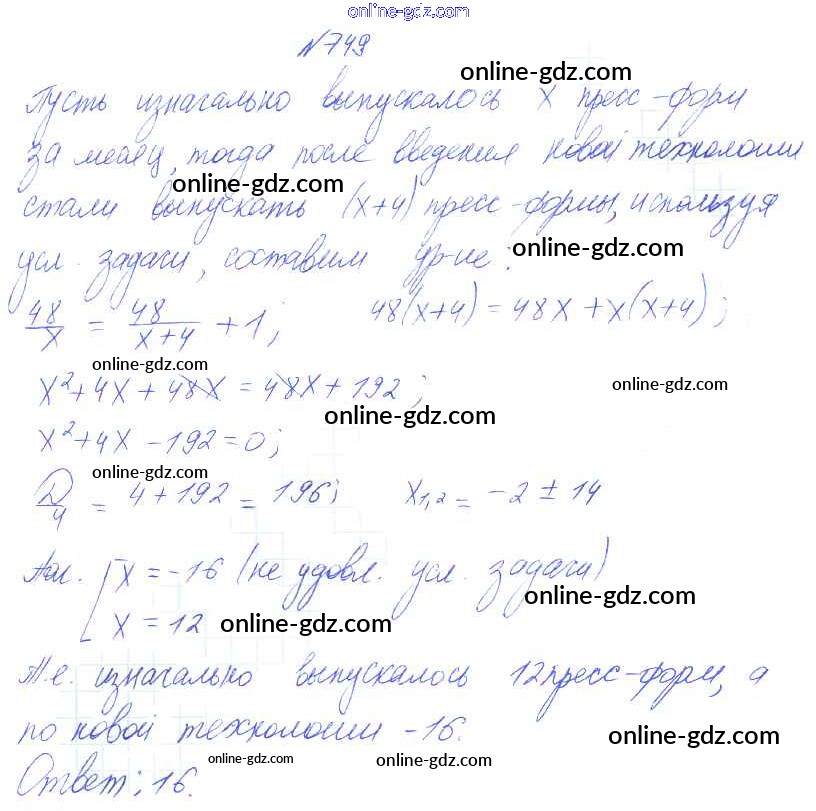 online-gdz.com
№749
online-gdz.com
Пусть изначально выпускалось x пресс-форм
за месяц, тогда после введения новой технологии
online-gdz.com
стали выпускать (x+4) пресс-формы, используя
online-gdz.com
усл. задачи, составим ур-ие:
48/x = 48/(x+4) + 1; 48(x+4) = 48x + x(x+4);
online-gdz.com
online-gdz.com
x² + 4x + 48x = 48x + 192;
online-gdz.com
x² + 4x - 192 = 0;
online-gdz.com
D/4 = 4 + 192 = 196; x1,2 = -2 ± 14
[x = -16 (не удовл. усл. задачи)
online-gdz.com
x = 12 online-gdz.com
Т.е. изначально выпускалось 12 пресс-форм, а
по новой технологии -16.
online-gdz.com
online-gdz.com
online-gdz.com
Ответ: 16.